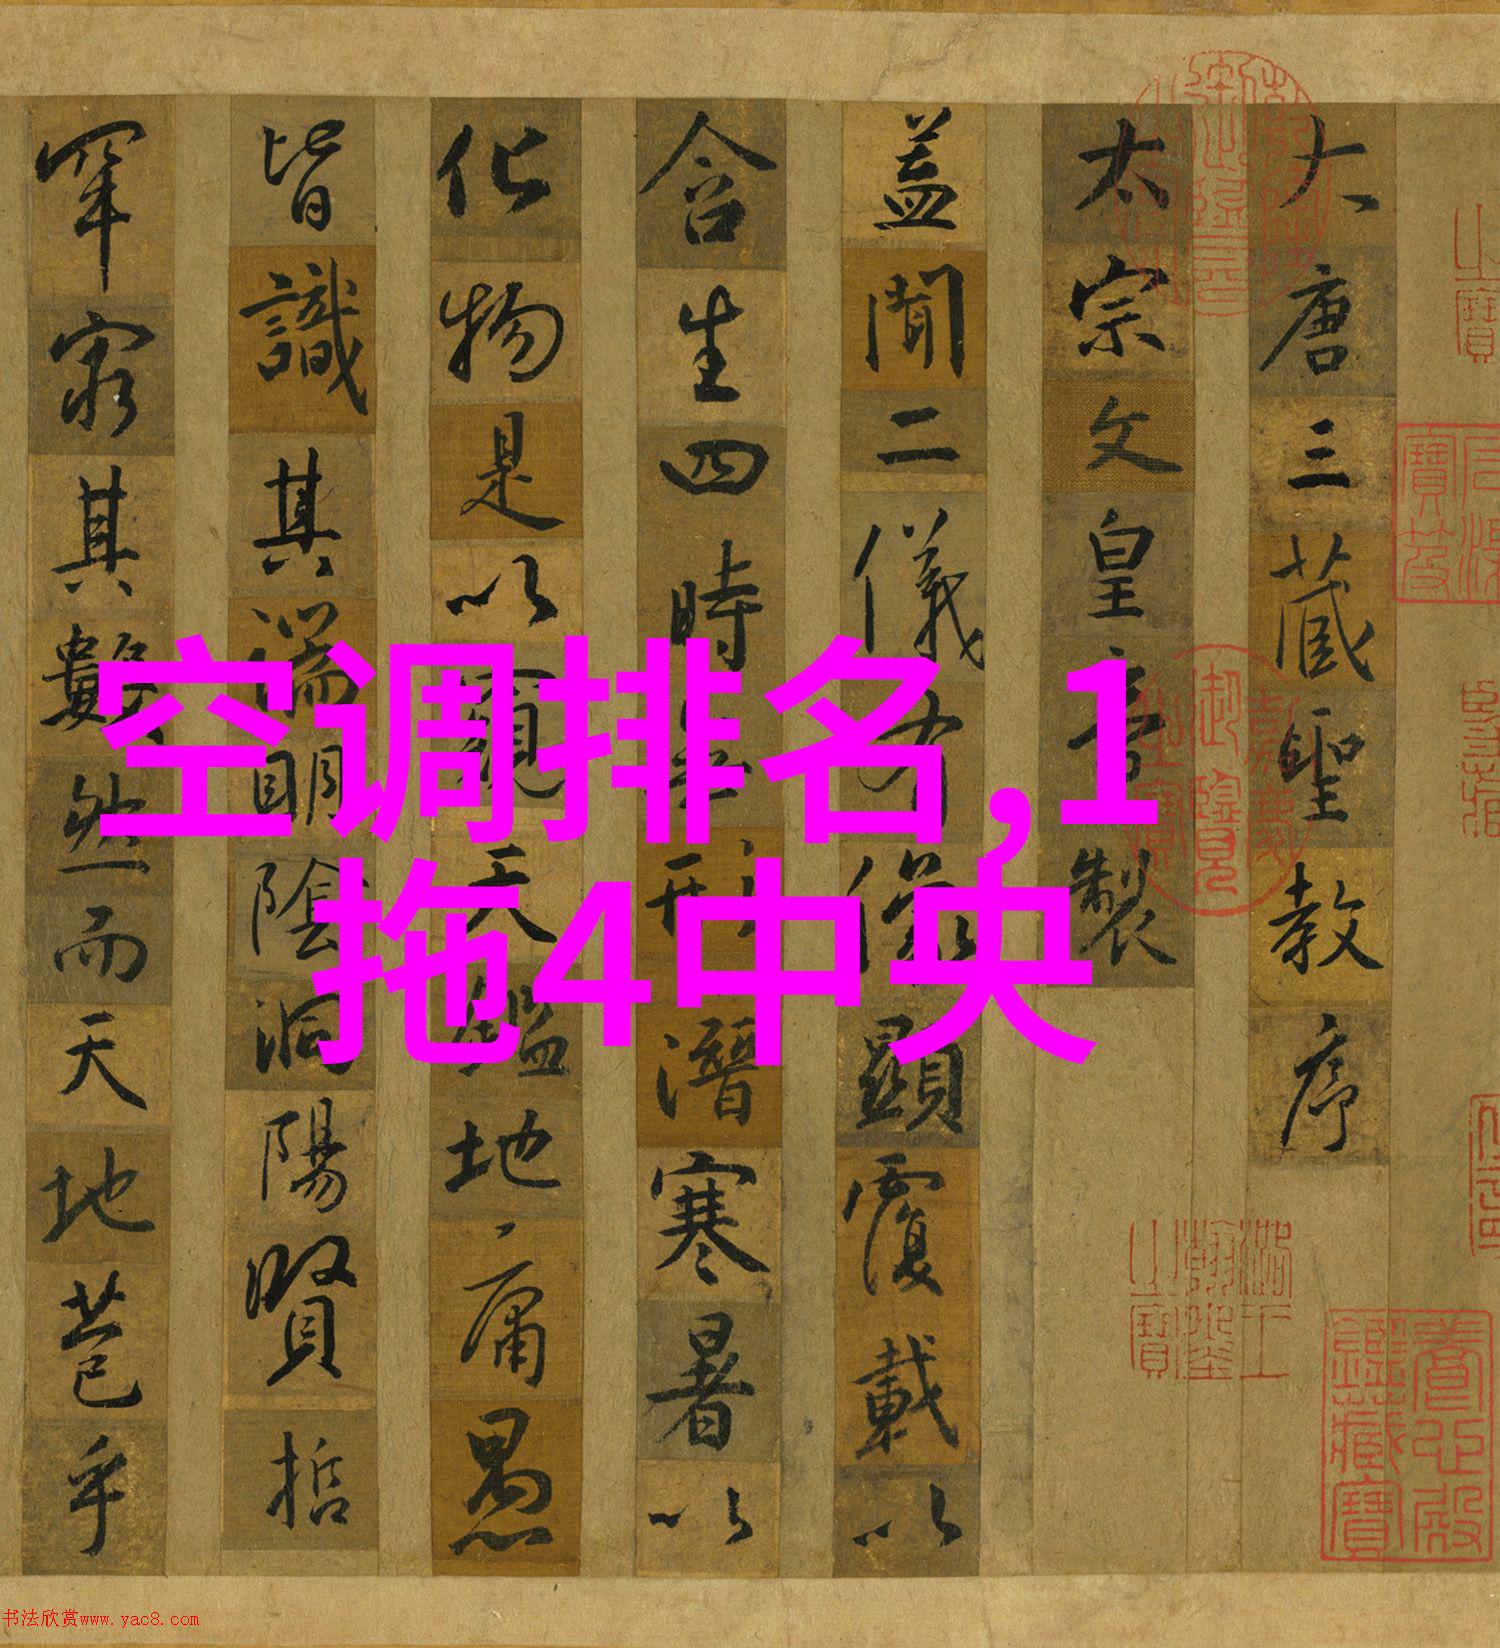 大唐三藏聖教序
太宗文皇帝製
蓋聞二儀有像顯覆載以
含生四時無形潛寒暑以
化物是以窺天鑑地庸愚
皆識其端明陰洞陽賢哲
罕窮其數然而天地苞乎
空调排名,1
拖4中央
嘉慶御覽之寶
石渠寶笈
養心殿鑑藏寶
书法欣赏www.yac8.com